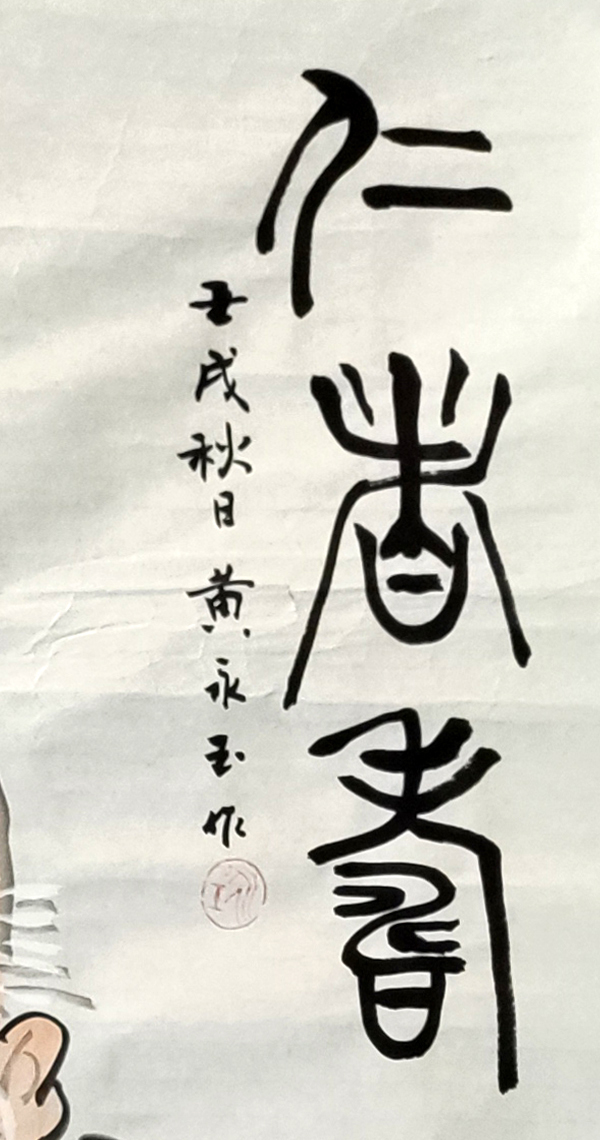 仁者壽
壬戌秋日 黄永玉作